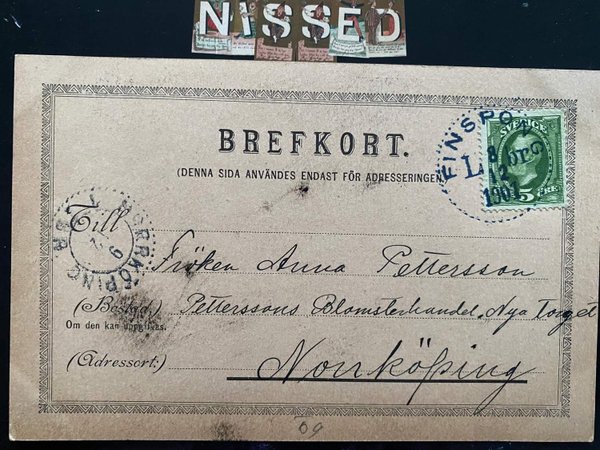 NISSED
BREFKORT.
(DENNA SIDA ANVÄNDES ENDAST FÖR ADRESSERINGEN)
FINSPONG
SVERIGE
1901
5 ÖRE
NORRKÖPING
Till
Fröken Anna Pettersson
(Bostad:) Petterssons Blomsterhandel, Nya Torget
Om den kan uppgifvas.
(Adressort:)
Norrköping
09